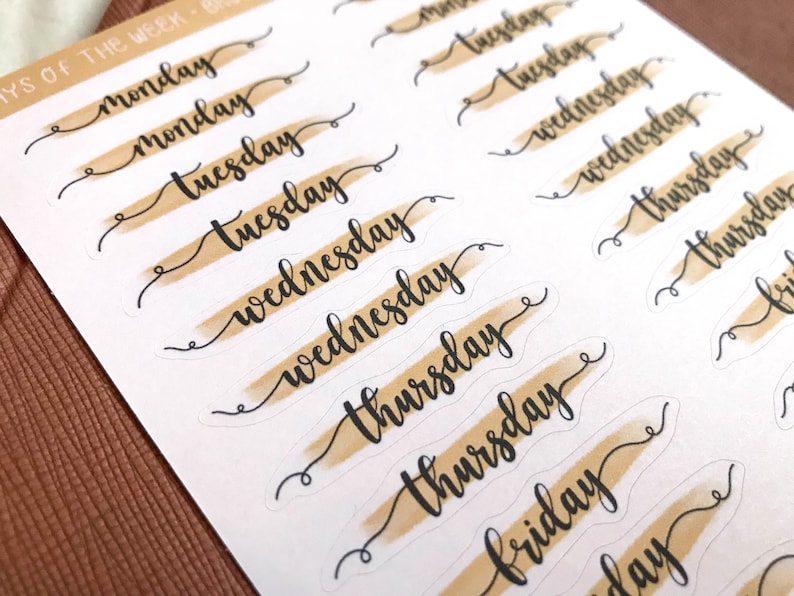 DAYS OF THE WEEK -
monday
monday
tuesday
tuesday
wednesday
wednesday
thursday
thursday
friday
friday
monday
tuesday
tuesday
wednesday
wednesday
thursday
thursday